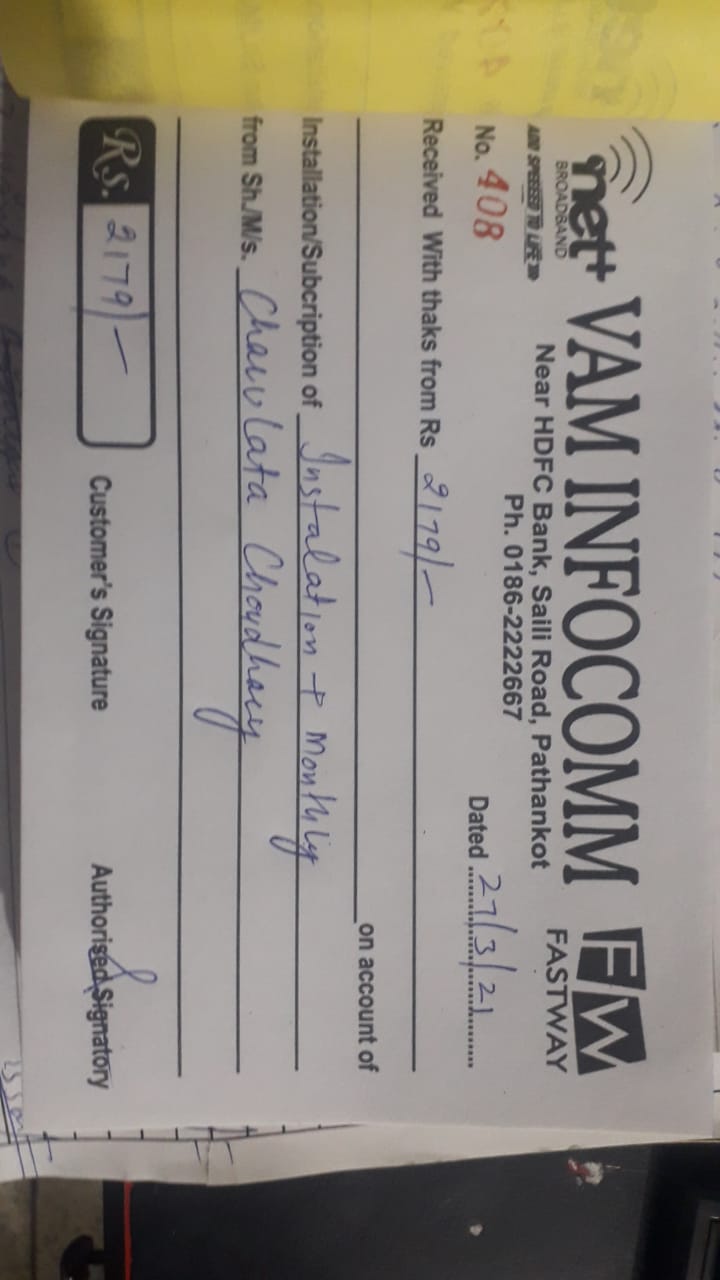 net+ VAM INFOCOMM FW
BROADBAND
FASTWAY
ADD SPEEEED TO LIFE
Near HDFC Bank, Saili Road, Pathankot
Ph. 0186-2222667
No. 408 Dated 27/3/21
Received With thaks from Rs 2179/-
on account of
Installation/Subcription of Instalation + Monthly
from Sh./M/s. Charulata Choudhary
Rs. 2179/- Customer's Signature Authorised Signatory